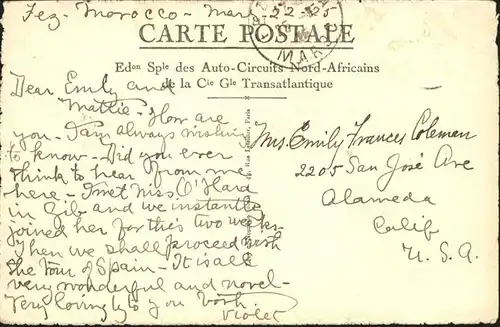 Fez - Morocco - Mar - 22 - 25
MAR
CARTE POSTALE
Edon Sple des Auto-Circuits Nord-Africains
de la Cie Gle Transatlantique
Dear Emily and
Mattie - How are
you - I am always wishing
to know - Did you ever
think to hear from me
here - I met Miss O'Hara
in Gib and we instantly
joined her for this two weeks -
when we shall proceed with
the tour of Spain - It is all
very wonderful and novel -
Very lovingly to you both.
Violet
Mrs. Emily Frances Coleman
2205 San José Ave
Alameda
Calif
U. S. A.